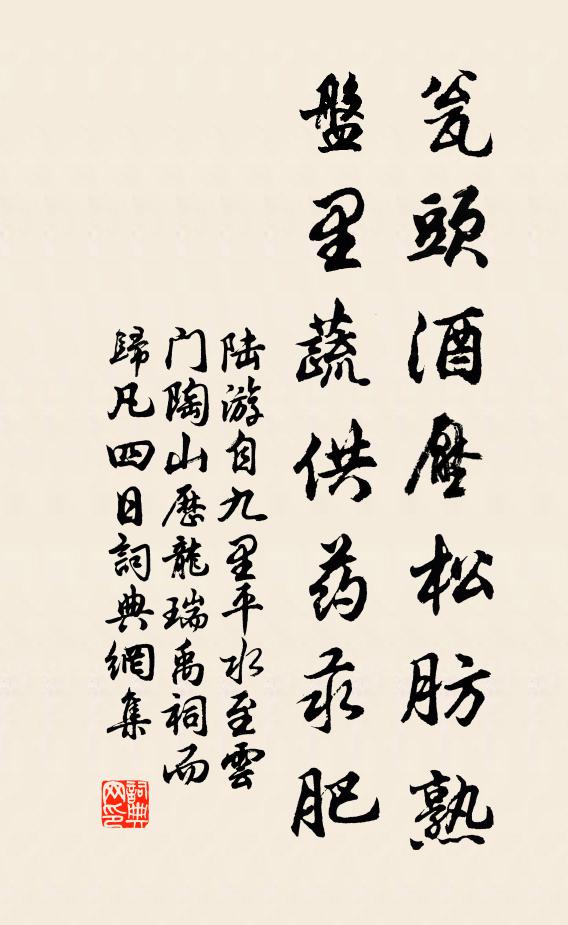 瓮頭酒壓松肪熟
盤里蔬供药苗肥
陆游自九里平水至雲
门陶山歷龍瑞禹祠而
歸凡四日詞典網集
詞典网印